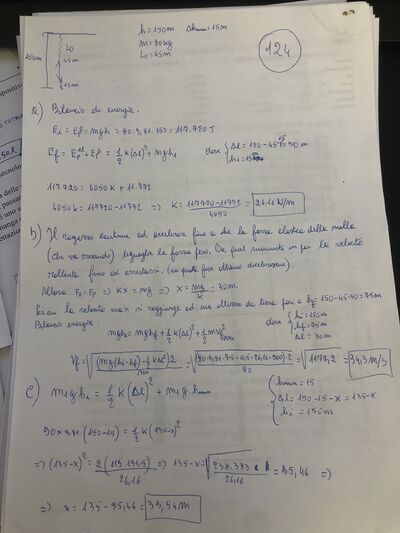 h = 150m Δhmin = 15m
m = 80kg
L₀ = 45m
124
150m
L₀
45m
15m
a) Bilancio di energia.
Ei = Ep = mgh = 80 · 9,81 · 150 = 117.720 J
Ef = Ep + Ep = 1/2 k(Δl)² + mghf dove { Δl = 150 - 45 - 15 = 90 m
117.720 = 4050K + 11.772
4050K = 117720 - 11772 => K = 117720 - 11772 / 4050 = 26,16 N/m
b) Il ragazzo continua ad accelerare fino a che la forza elastica della molla
(che va cercando) uguaglia la forza peso. Da quel momento in poi la velocità
rallenta fino ad arrestarsi. (in questa fase abbiamo decelerazione).
Allora Fe = Fp => kx = mg => x = mg/K = 30m
la velocità max si raggiunge ad una altezza da terra pari a hf = 150 - 45 - 30 = 75m
Bilancio energia:
mghi = mghf + 1/2 k(Δl)² + 1/2 mVf² dove { hi = 150m
hf = 75m
Δl = 30m
Vf = √ (mg(hi - hf) - 1/2 kΔl²) 2 / m = √ (80 · 9,81 · 75 - 0,5 · 26,16 · 900) · 2 / 80 = √ 1177,2 = 34,3 m/s
c) m₁ghi = 1/2 k(Δl)² + m₁g hmin
{ hmin = 15
Δl = 150 - 15 - x = 135 - x
hi = 150m
90 × 9,81 · (150 - 15) = 1/2 k (135 - x)²
=> (135 - x)² = 2 (119.191,5) / 26,16 => 135 - x = √ 238.383 / 26,16 = 95,46 =>
=> x = 135 - 95,46 = 39,54 m